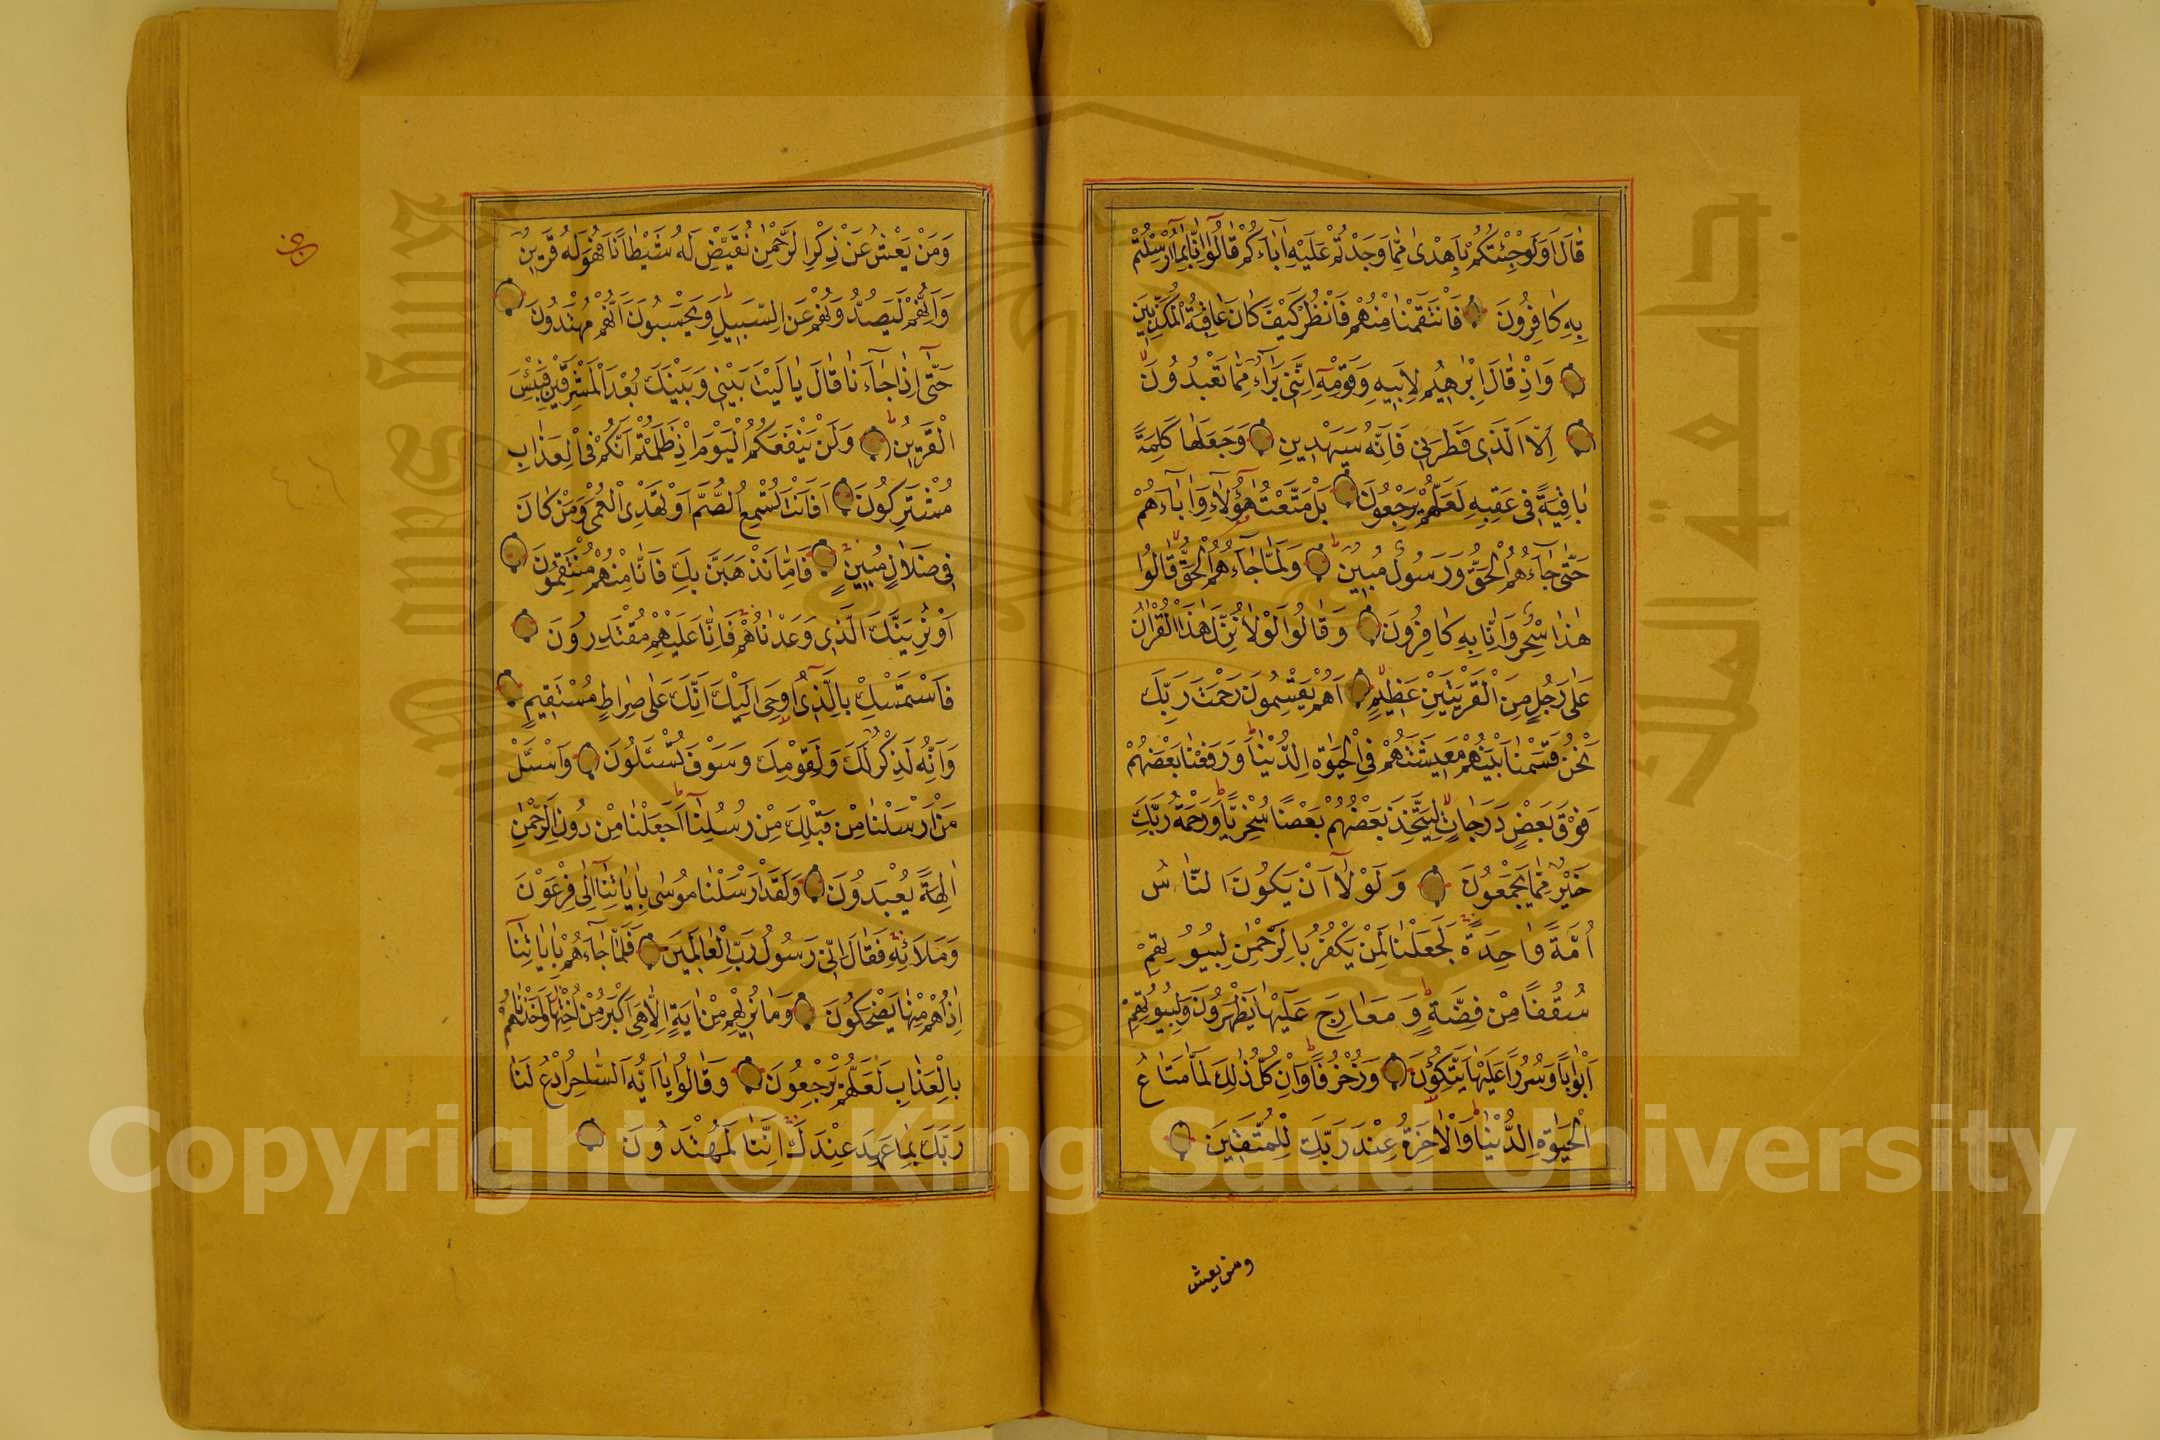 قَالَ اَوَلَوْ جِئْتُكُمْ بِاَهْدٰى مِمَّا وَجَدْتُمْ عَلَيْهِ اٰبَاءَكُمْ قَالُوا اِنَّا بِمَا اُرْسِلْتُمْ
بِهِ كَافِرُونَ فَانْتَقَمْنَا مِنْهُمْ فَانْظُرْ كَيْفَ كَانَ عَاقِبَةُ الْمُكَذِّبِينَ
وَاِذْ قَالَ اِبْرٰهِيمُ لِاَبِيهِ وَقَوْمِهِ اِنَّنِى بَرَاءٌ مِمَّا تَعْبُدُونَ
اِلَّا الَّذِى فَطَرَنِى فَاِنَّهُ سَيَهْدِينِ وَجَعَلَهَا كَلِمَةً
بَاقِيَةً فِى عَقِبِهِ لَعَلَّهُمْ يَرْجِعُونَ بَلْ مَتَّعْتُ هٰؤُلَاءِ وَاٰبَاءَهُمْ
حَتّٰى جَاءَهُمُ الْحَقُّ وَرَسُولٌ مُبِينٌ وَلَمَّا جَاءَهُمُ الْحَقُّ قَالُوا
هٰذَا سِحْرٌ وَاِنَّا بِهِ كَافِرُونَ وَقَالُوا لَوْلَا نُزِّلَ هٰذَا الْقُرْاٰنُ
عَلٰى رَجُلٍ مِنَ الْقَرْيَتَيْنِ عَظِيمٍ اَهُمْ يَقْسِمُونَ رَحْمَتَ رَبِّكَ
نَحْنُ قَسَمْنَا بَيْنَهُمْ مَعِيشَتَهُمْ فِى الْحَيٰوةِ الدُّنْيَا وَرَفَعْنَا بَعْضَهُمْ
فَوْقَ بَعْضٍ دَرَجَاتٍ لِيَتَّخِذَ بَعْضُهُمْ بَعْضًا سُخْرِيًّا وَرَحْمَةُ رَبِّكَ
خَيْرٌ مِمَّا يَجْمَعُونَ وَلَوْلَا اَنْ يَكُونَ النَّاسُ
اُمَّةً وَاحِدَةً لَجَعَلْنَا لِمَنْ يَكْفُرُ بِالرَّحْمٰنِ لِبُيُوتِهِمْ
سُقُفًا مِنْ فِضَّةٍ وَمَعَارِجَ عَلَيْهَا يَظْهَرُونَ وَلِبُيُوتِهِمْ
اَبْوَابًا وَسُرُرًا عَلَيْهَا يَتَّكِؤُنَ وَزُخْرُفًا وَاِنْ كُلُّ ذٰلِكَ لَمَّا مَتَاعُ
الْحَيٰوةِ الدُّنْيَا وَالْاٰخِرَةُ عِنْدَ رَبِّكَ لِلْمُتَّقِينَ
ومن يعش
وَمَنْ يَعْشُ عَنْ ذِكْرِ الرَّحْمٰنِ نُقَيِّضْ لَهُ شَيْطَانًا فَهُوَ لَهُ قَرِينٌ
وَاِنَّهُمْ لَيَصُدُّونَهُمْ عَنِ السَّبِيلِ وَيَحْسَبُونَ اَنَّهُمْ مُهْتَدُونَ
حَتّٰى اِذَا جَاءَنَا قَالَ يَا لَيْتَ بَيْنِى وَبَيْنَكَ بُعْدَ الْمَشْرِقَيْنِ فَبِئْسَ
الْقَرِينُ وَلَنْ يَنْفَعَكُمُ الْيَوْمَ اِذْ ظَلَمْتُمْ اَنَّكُمْ فِى الْعَذَابِ
مُشْتَرِكُونَ اَفَاَنْتَ تُسْمِعُ الصُّمَّ اَوْ تَهْدِى الْعُمْىَ وَمَنْ كَانَ
فِى ضَلَالٍ مُبِينٍ فَاِمَّا نَذْهَبَنَّ بِكَ فَاِنَّا مِنْهُمْ مُنْتَقِمُونَ
اَوْ نُرِيَنَّكَ الَّذِى وَعَدْنَاهُمْ فَاِنَّا عَلَيْهِمْ مُقْتَدِرُونَ
فَاسْتَمْسِكْ بِالَّذِى اُوحِىَ اِلَيْكَ اِنَّكَ عَلٰى صِرَاطٍ مُسْتَقِيمٍ
وَاِنَّهُ لَذِكْرٌ لَكَ وَلِقَوْمِكَ وَسَوْفَ تُسْـَٔلُونَ وَاسْـَٔلْ
مَنْ اَرْسَلْنَا مِنْ قَبْلِكَ مِنْ رُسُلِنَا اَجَعَلْنَا مِنْ دُونِ الرَّحْمٰنِ
اٰلِهَةً يُعْبَدُونَ وَلَقَدْ اَرْسَلْنَا مُوسٰى بِاٰيَاتِنَا اِلٰى فِرْعَوْنَ
وَمَلَائِهِ فَقَالَ اِنِّى رَسُولُ رَبِّ الْعَالَمِينَ فَلَمَّا جَاءَهُمْ بِاٰيَاتِنَا
اِذَا هُمْ مِنْهَا يَضْحَكُونَ وَمَا نُرِيهِمْ مِنْ اٰيَةٍ اِلَّا هِىَ اَكْبَرُ مِنْ اُخْتِهَا وَاَخَذْنَاهُمْ
بِالْعَذَابِ لَعَلَّهُمْ يَرْجِعُونَ وَقَالُوا يَا اَيُّهَ السَّاحِرُ ادْعُ لَنَا
رَبَّكَ بِمَا عَهِدَ عِنْدَكَ اِنَّنَا لَمُهْتَدُونَ
جامعة الملك سعود
King Saud University
1957
Copyright © King Saud University